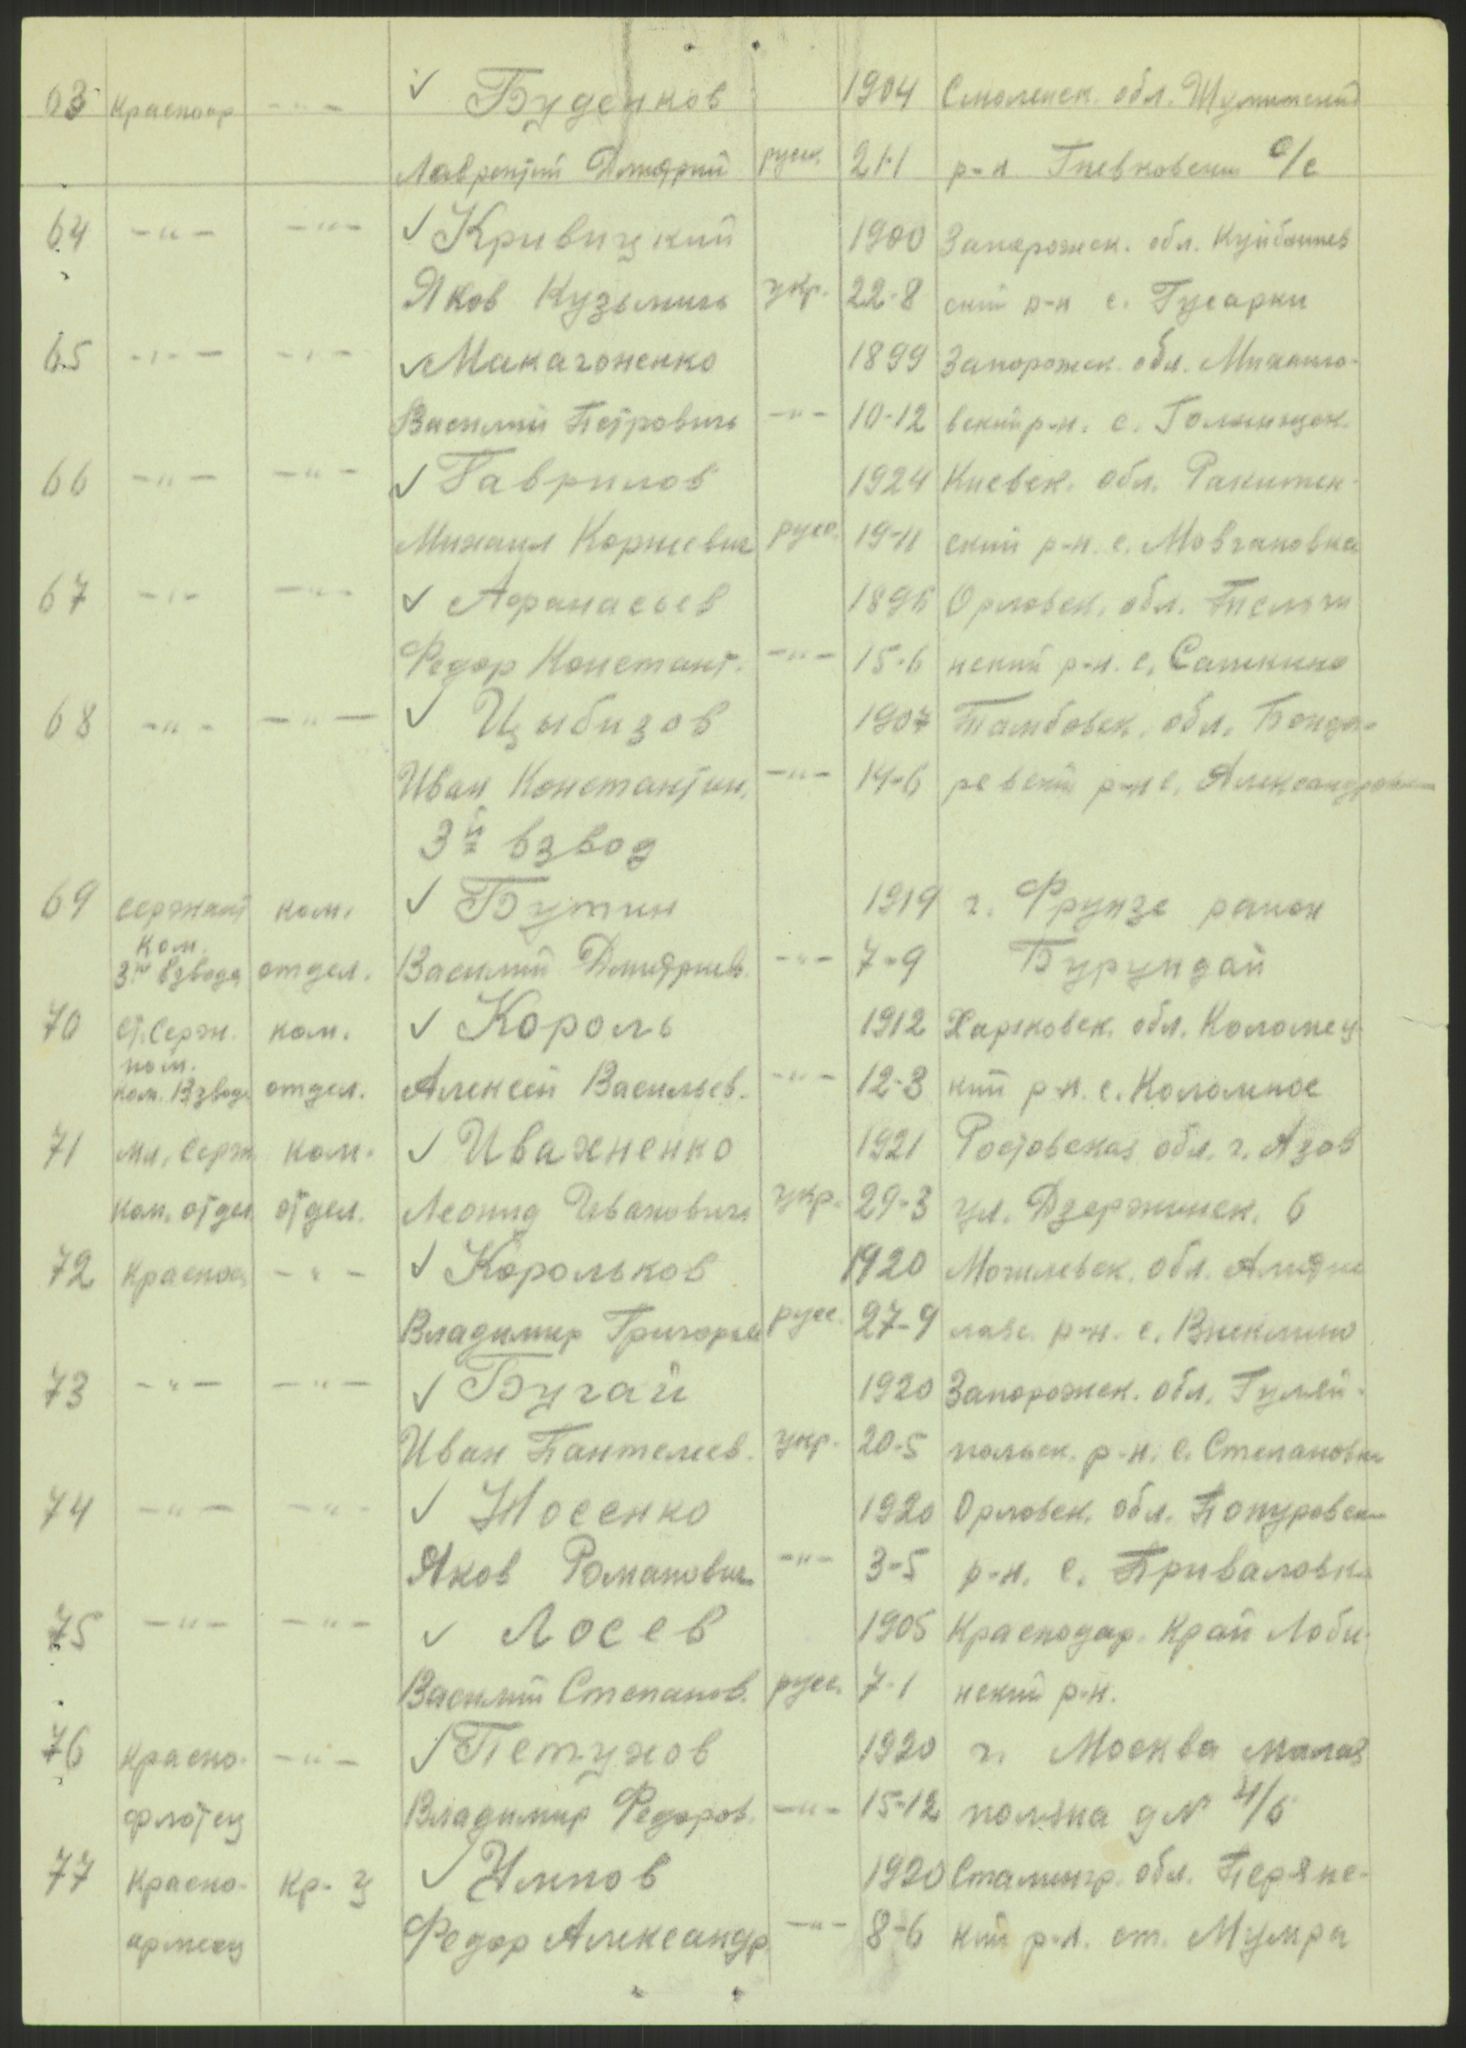 63 Красноар -"- ✓ Буденков 1904 Смоленск. обл. Шумячский
Лаврентий Дмитрий русс. 21-1 р-н Гневковский с/с
64 -"- -"- ✓ Кривицкий 1900 Запорожск. обл. Куйбышев
Яков Кузьмичь укр. 22-8 ский р-н с. Гусарки
65 -"- -"- ✓ Макагоненко 1899 Запорожск. обл. Михайло-
Василий Петровичь -"- 10-12 вский р-н. с.
66 -"- -"- ✓ Гаврилов 1924 Киевск. обл. Ракитян-
Михаил Корнеевич русс. 19-11 ский р-н. с. Мовчановка
67 -"- -"- ✓ Афанасьев 1895 Орловск. обл.
Федор Констант. -"- 15-6 нский р-н. с. Сашкино
68 -"- -"- ✓ Цыбизов 1907 Тамбовск. обл. Бонда-
Иван Константин. -"- 14-6 ревский р-н с. Александровка
3й взвод
69 Сержант ком. ✓ Бутин 1919 г. Фрунзе район
ком. 3го взвода отдел. Василий Дмитриев. -"- 7-9 Бурундай
70 ст. Серж. ком. ✓ Король 1912 Харьковск. обл. Коломец-
пом. ком. Взвода отдел. Алексей Васильев. -"- 12-3 кий р-н. с. Коломное
71 мл. Серж ком. ✓ Ивахненко 1921 Ростовская обл. г. Азов
ком. отдел отдел. Леонид Ивановичь укр. 29-3 ул. Дзержинск. 6
72 Красноа -"- ✓ Корольков 1920 Могилевск. обл.
Владимир Григорье русс. 27-9 лавс. р-н. с.
73 -"- -"- ✓ Бугай 1920 Запорожск. обл. Гуляй-
Иван Пантелеев. укр. 20-5 польск. р-н. с. Степановка
74 -"- -"- ✓ Носенко 1920 Орловск. обл.
Яков Романович -"- 3-5 р-н. с. Приваловка
75 -"- -"- ✓ Лосев 1905 Краснодар. Край Лоби-
Василий Степанов. русс. 7-1 нский р-н.
76 Красно- -"- ✓ Петухов 1920 г. Москва малая
флотец Владимир Федоров. -"- 15-12 поляна д N 4/6
77 Красно- кр-ц ✓ 1920 Сталингр. обл.
армеец Федор Александр -"- 8-6 кий р-н. ст. Мумра